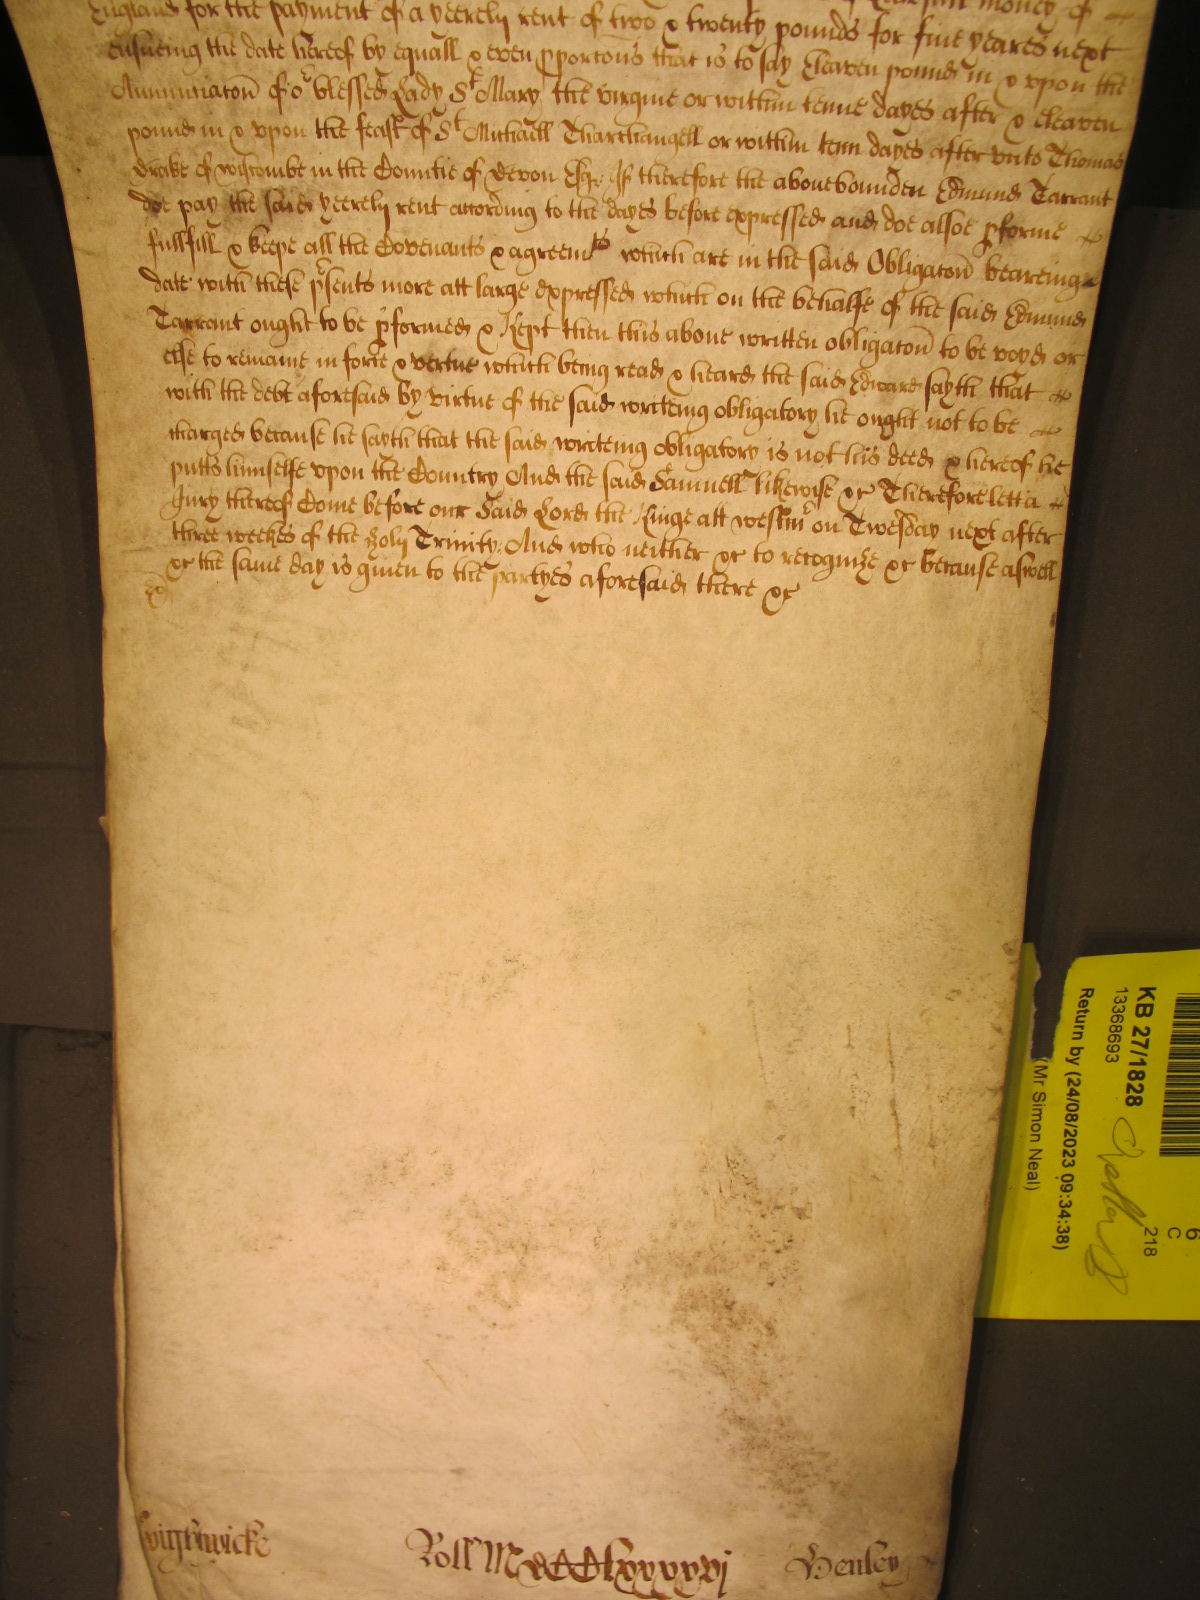 England for the payment of a yeerely rent of two & twenty pounds for five yeares next
ensueing the date hereof by equall & even pportons that is to say Eleaven pound in & upon the
Annunciaton of or blessed Lady St Mary the virgine or within tenne dayes after & eleaven
pound in & upon the feast of St Michaell Tharchangell or within tenn dayes after unto Thomas
Drake of wiscombe in the Countie of Devon Esqr If therefore the abovebounden Edmund Tarrant
doe pay the said yeerely rent according to the dayes before expressed and doe alsoe pforme
fullfill & keepe all the Covenants & agreemts which are in the said Obligaton beareing
date with these psents more att large expressed which on the behalfe of the said Edmund
Tarrant ought to be pformed & kept then this above written obligaton to be voyd or
else to remaine in force & vertue which being read & heard the said Edward sayth that
with the debt aforesaid by virtue of the said writeing obligatory he ought not to be
charged because he sayth that the said writeing obligatory is not his deed & hereof he
putts himselfe upon the Country And the said Samuell likewise &c Therefore lett a
Jury thereof Come before our Said Lord the Kinge att westmr on Twesday next after
three weekes of the holy Trinity And who neither &c to recognize &c because aswell
&c the same day is given to the partyes aforesaid there &c
Wightwicke Roll MDCClxxxxvj Henley
KB 27/1828
13368693
Return by (24/08/2023 09:34:38)
(Mr Simon Neal)
218
C
6